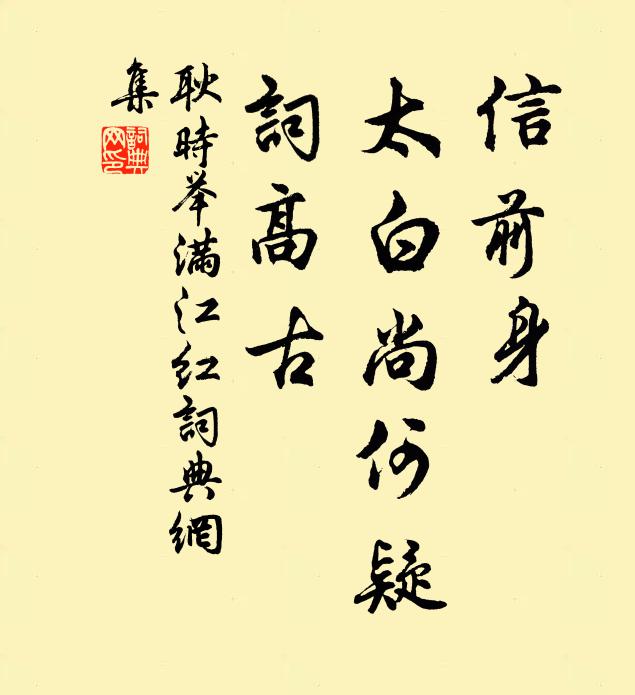 信前身
太白尚何疑
詞高古
耿時举满江红詞典網
集
詞典
网印